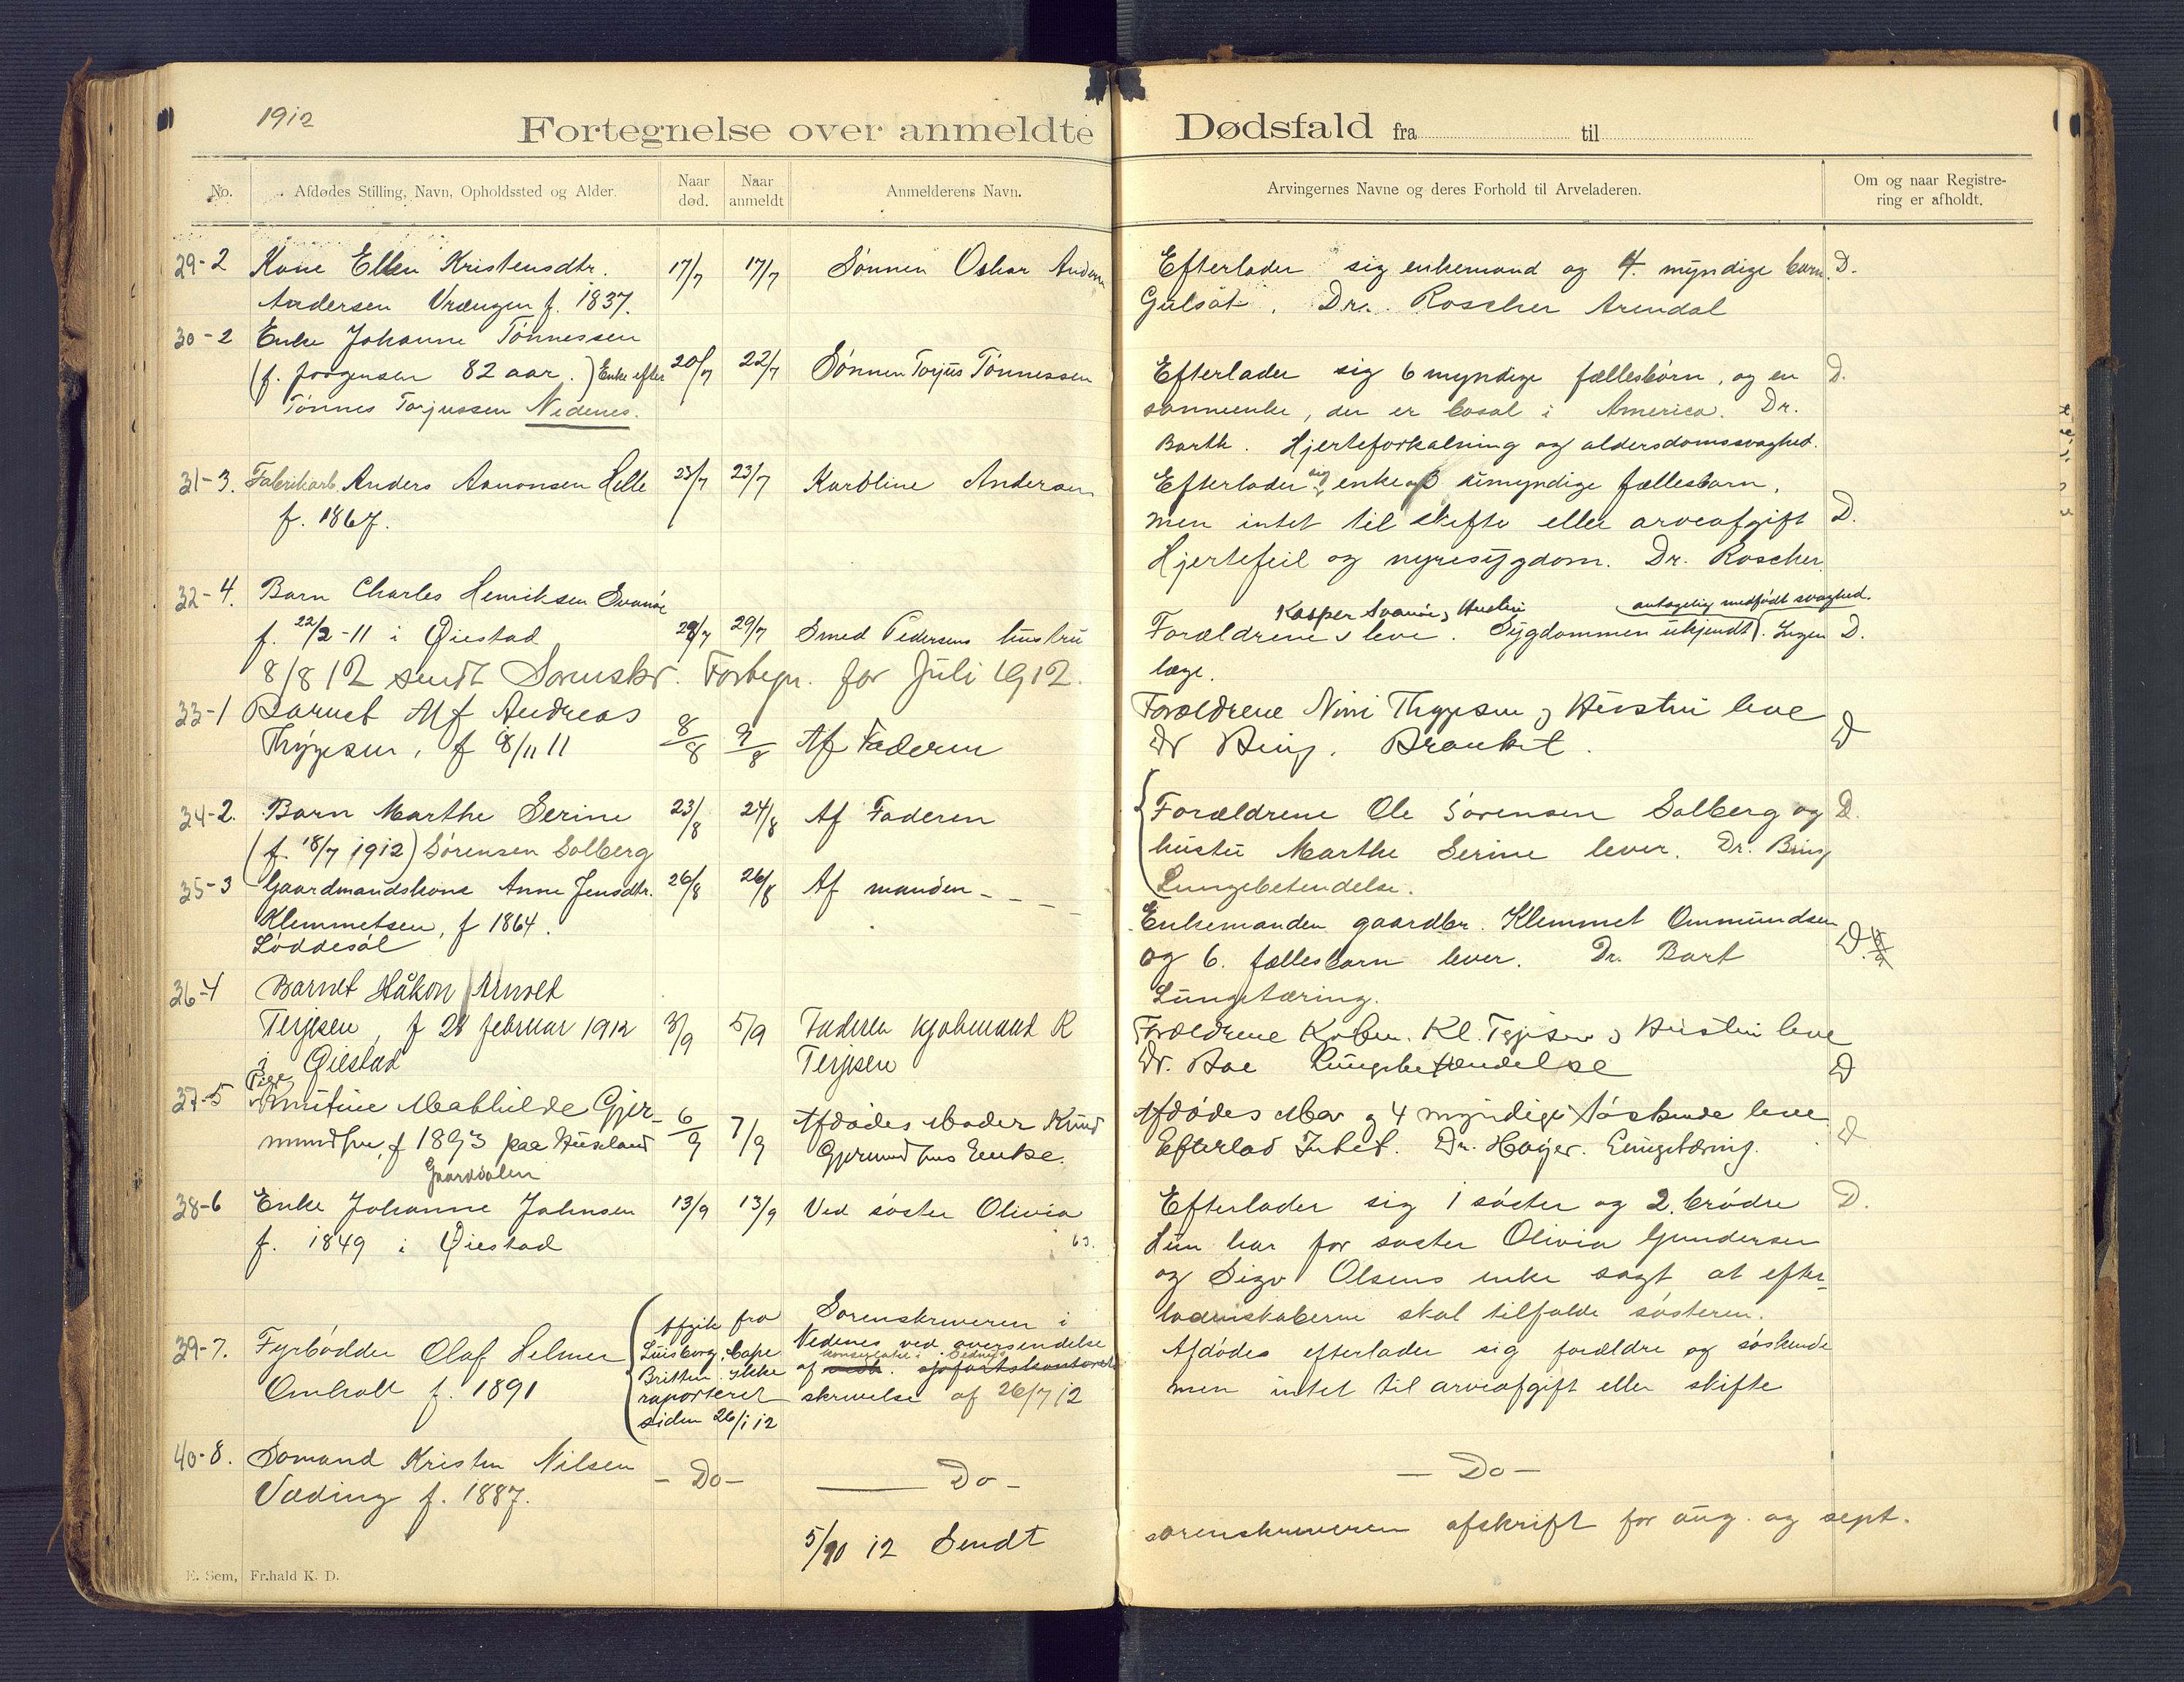 1912
Fortegnelse over anmeldte Dødsfald fra til
No. Afdødes Stilling, Navn, Opholdssted og Alder. Naar død. Naar anmeldt Anmelderens Navn. Arvingernes Navne og deres Forhold til Arveladeren. Om og naar Registrering er afholdt.
29-2 Kone Ellen Kristensdtr. 17/7 17/7 Sønnen Oskar Andersen Efterlader sig enkemand og 4. myndige barn. D.
Andersen Vrængen f. 1837. Gulsot. Dr. Roscher Arendal
30-2 Enke Johanne Tønnessen
(f. Jorgensen 82 aar.) Enke efter 20/7 22/7 Sønnen Torjus Tønnessen Efterlader sig 6 myndige fællesbørn, og en D.
Tønnes Torjussen Nedenes. sønneenke, der er bosat i America. Dr.
Barth. Hjerteforkalkning og aldersdomssvaghed.
31-3. Fabrikarb. Anders Aanonsen Helle 23/7 23/7 Karoline Andersen Efterlader sig enke og 3 umyndige fællesbarn,
f. 1867. men intet til skifte eller arveafgift D.
Hjertefeil og nyresygdom. Dr. Roscher.
32-4. Barn Charles Henriksen Svanøe Kasper Svanøe, Hustru antagelig medfødt svaghed.
f. 22/2-11 i Øiestad 29/7 29/7 Smed Pedersens hustru Forældrene leve. Sygdommen ukjendt). Ingen D.
læge.
8/8 12 sendt Sorenskr. Fortegn. for Juli 1912.
33-1 Barnet Alf Andreas Forældrene Nini Thygesen, Hustru leve
Thygesen, f 8/11 11 8/8 9/8 Af Faderen Dr Bing. Bronkit. D
34-2. Barn Marthe Serine 23/8 24/8 Af Faderen Forældrene Ole Sørensen Solberg og D.
(f. 18/7 1912) Sørensen Solberg hustru Marthe Serine lever. Dr. Bing
Lungebetendelse.
35-3 Gaardmandskone Anne Jensdtr. 26/8 26/8 Af manden - - - -
Klemmetsen, f 1864. Enkemanden gaardbr. Klemmet Ommundsen
Løddesøl og 6. fællesbarn lever. Dr. Bart D.
Lungetæring.
36-4 Barnet Håkon Arnolt
Terjesen, f 28 februar 1912 3/9 5/9 Faderen kjøbmand K Forældrene Kjøbm. Kl. Terjesen, Hustru leve
i Øiestad Terjesen Dr. Boe Lungebetændelse D
37-5 Pige Kristine Mathilde Gjer- 6/9 7/9 Afdødes Moder Knud Afdødes Mor og 4 myndige Søskende leve
mundhus, f 1893 paa Husland Gjermundhus Enke. Efterlod Intet. Dr. Høyer. Lungetæring. D
Gaarddalen
38-6 Enke Johanne Johnsen 13/9 13/9 Ved søster Olivia Efterlader sig 1 søster og 2. brødre D.
f. 1849 i Øiestad Hun har for søster Olivia Gundersen
og Sigv Olsens enke sagt at efter-
ladenskaberne skal tilfalde søsteren.
39-7. Fyrbødder Olaf Helmer Afgik fra Sorenskriveren i
Omholt f. 1891 Luisborg, Cape Nedenes ved oversendelse Afdødes efterlader sig forældre og søskende
Britten. Ikke af konsulatet i Sydney sjøfartskontorets men intet til arveafgift eller skifte
raporteret skrivelse af 26/7 12
siden 26/1 12
40-8. Sømand Kristen Nilsen - Do - Do - - Do -
Væding f. 1887.
5/10 12 Sendt sorenskriveren afskrift for aug. og sept.
E. Sem, Fr.hald K. D.